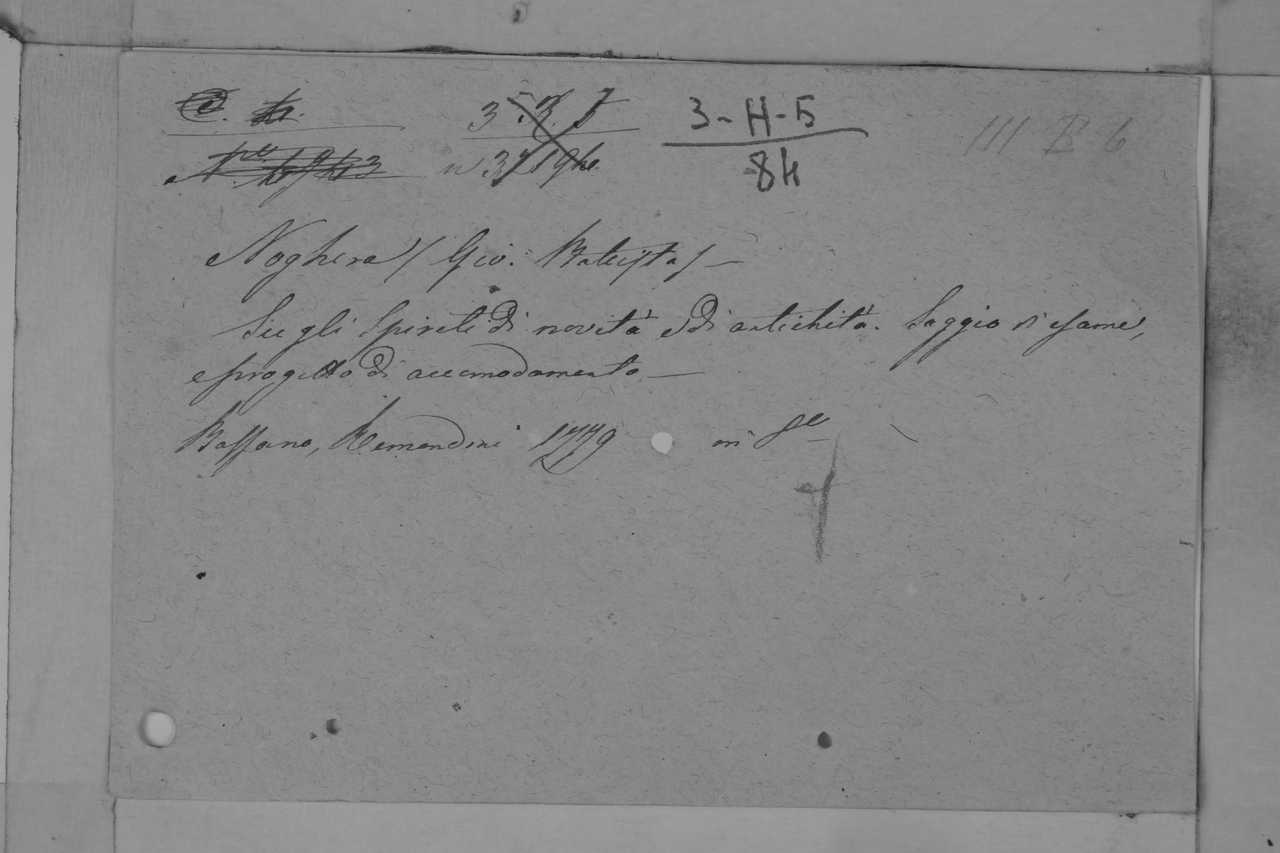 3-H-5 III B 6
84
Noghera / Gio. Battista / —
Sugli Spiriti di novità e di antichità. Saggio di esame,
e progetto di accomodamento —
Bassano, Remondini 1779 in 8º